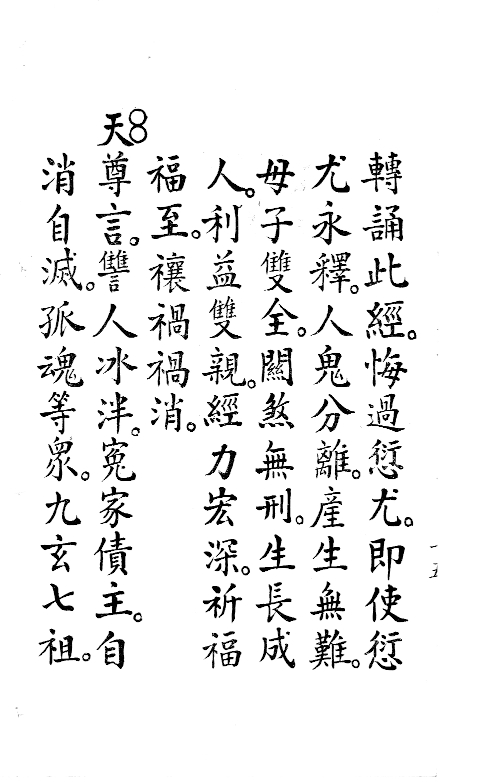 轉誦此經。悔過愆尤。即使愆
尤永釋。人鬼分離。產生無難。
母子雙全。關煞無刑。生長成
人。利益雙親。經力宏深。祈福
福至。禳禍禍消。
天8尊言。讐人冰泮。冤家債主。自
消自滅。孤魂等眾。九玄七祖。
一五